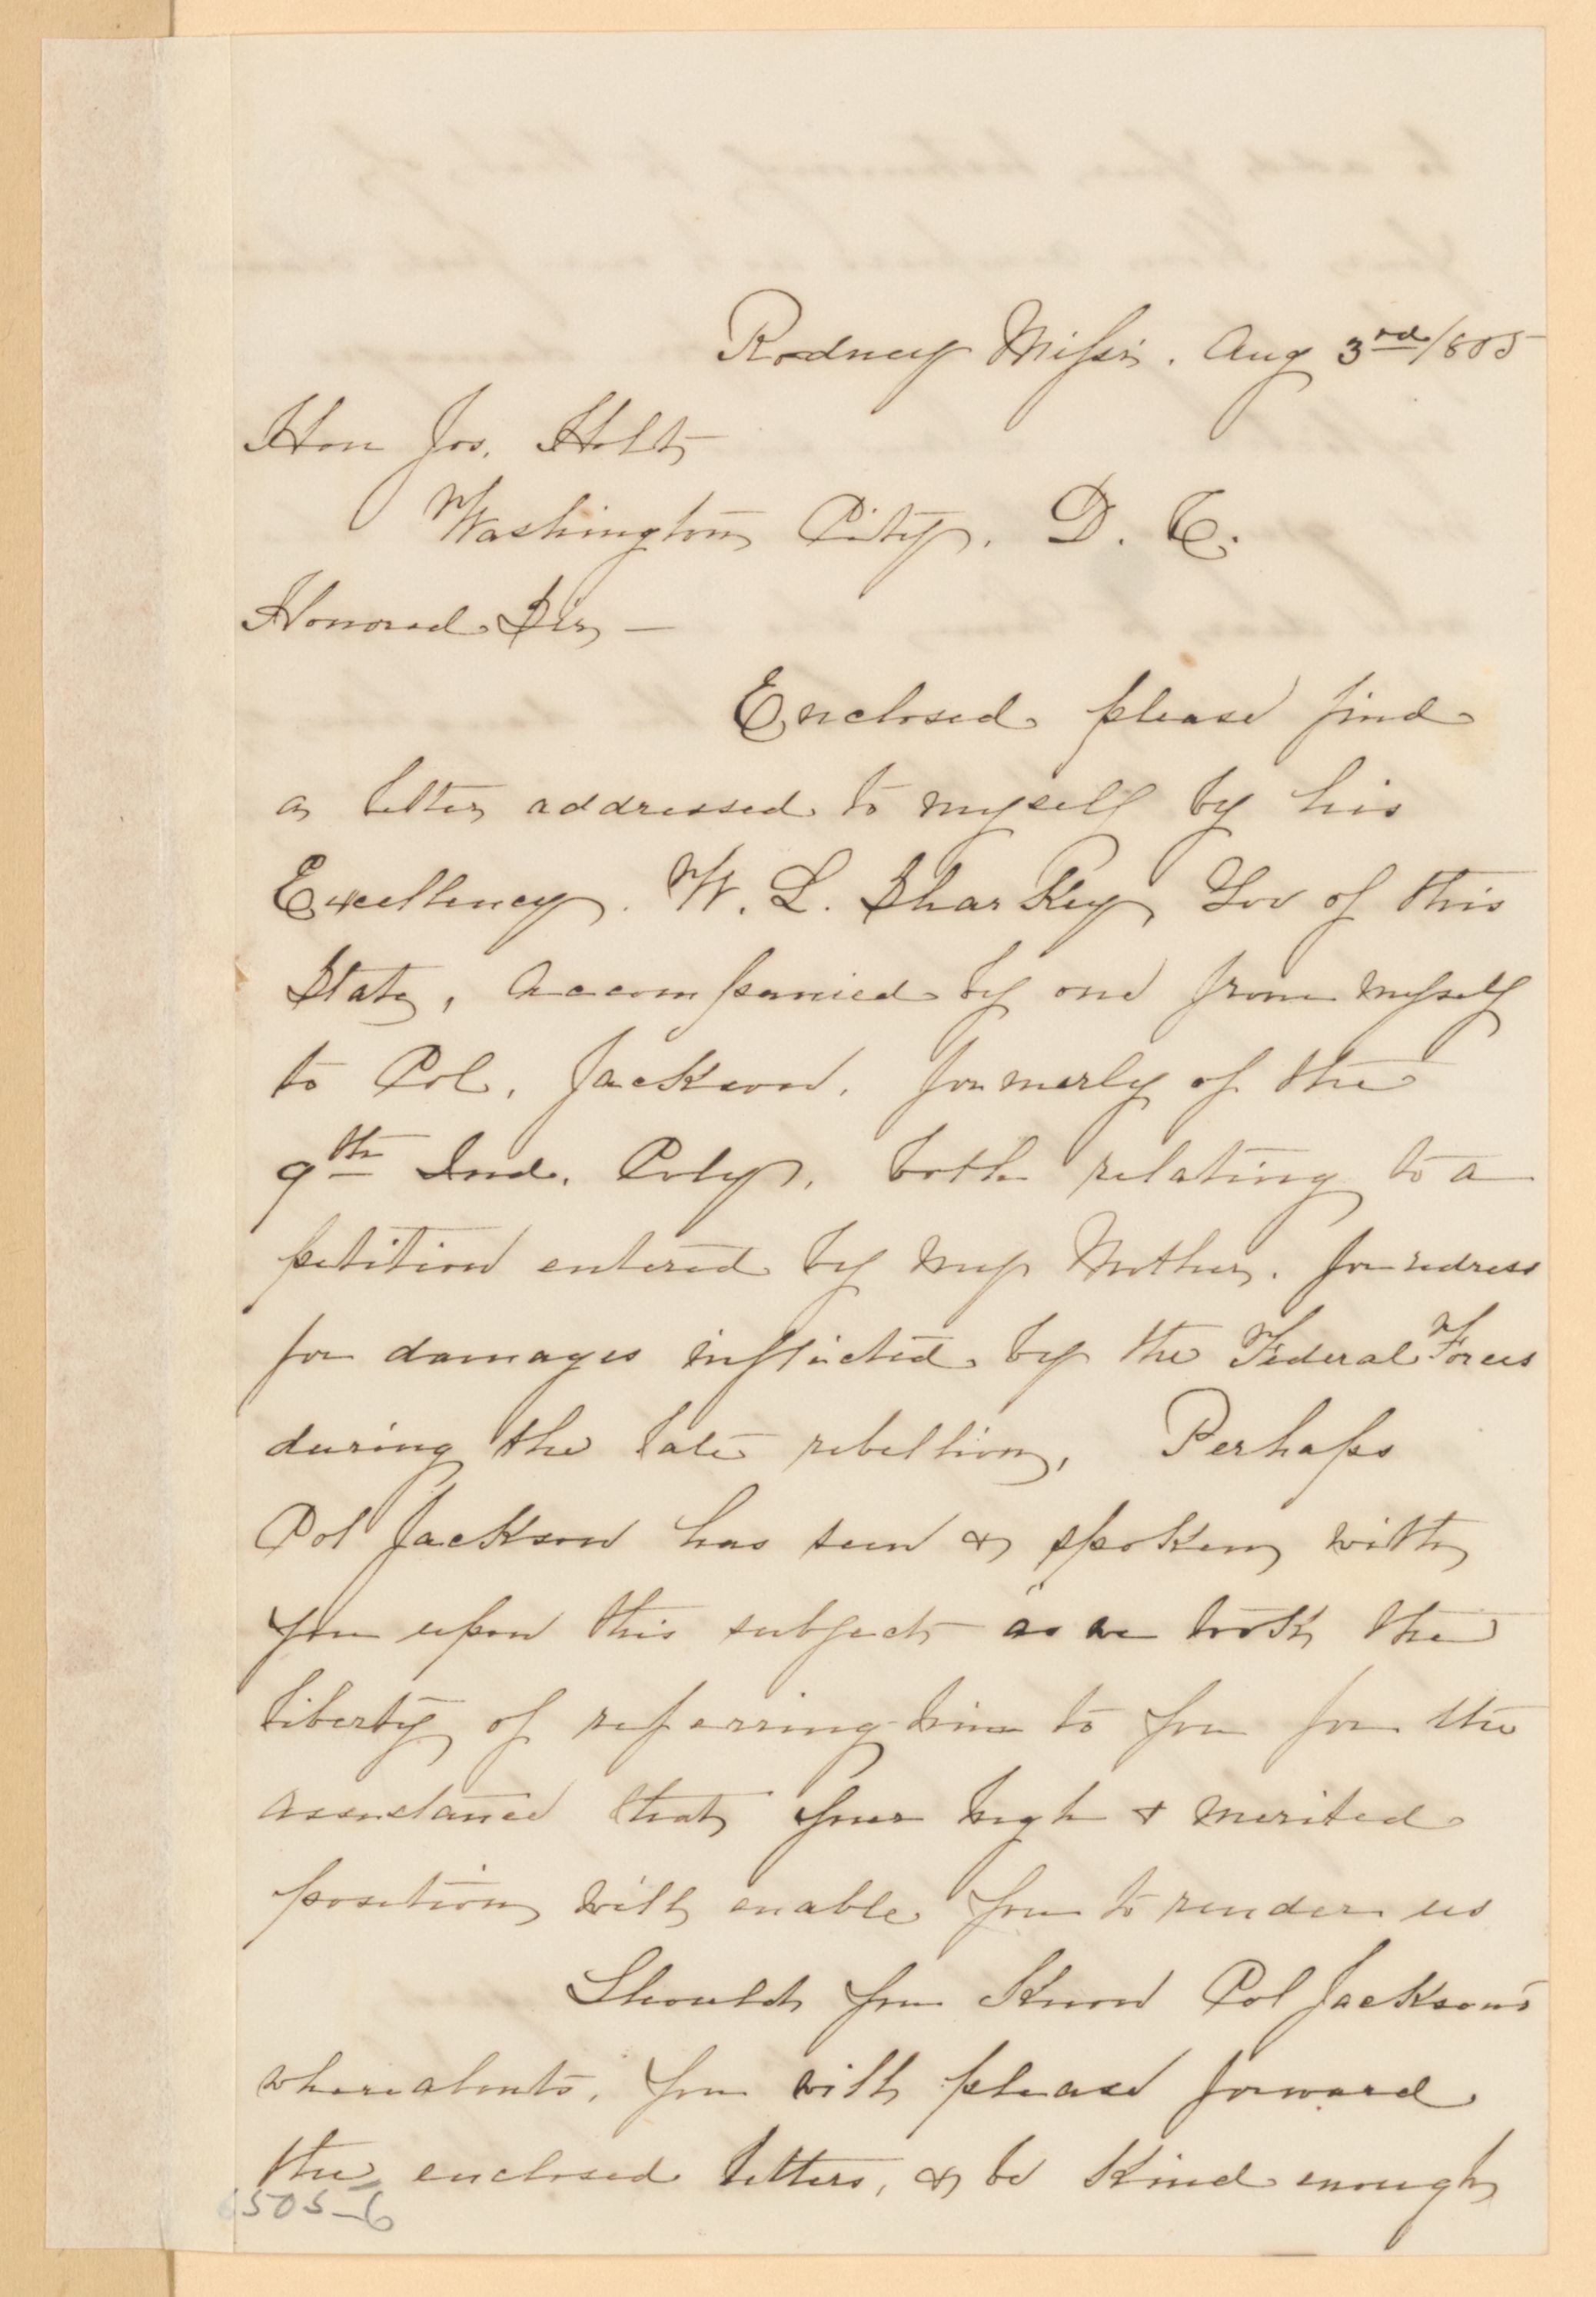 Rodney Missi. Aug 3rd/865
Hon Jos. Holt
Washington City. D. C.
Honored Sir —
Enclosed please find
a letter addressed to myself by his
Excellency. W. L. Sharkey Gov of this
State, accompanied by one from myself
to Col. Jackson. formerly of the
9th Ind. Cvly. both relating to a
petition entered by my Mother. for redress
for damages inflicted by the Federal Forces
during the late rebellion, Perhaps
Col Jackson has seen & spoken with
you upon this subject as we took the
liberty of referring him to you for the
assistance that your high & merited
position will enable you to render us
Should you know Col Jackson's
whereabouts, you will please forward
the enclosed letters, & be kind enough
6505-6